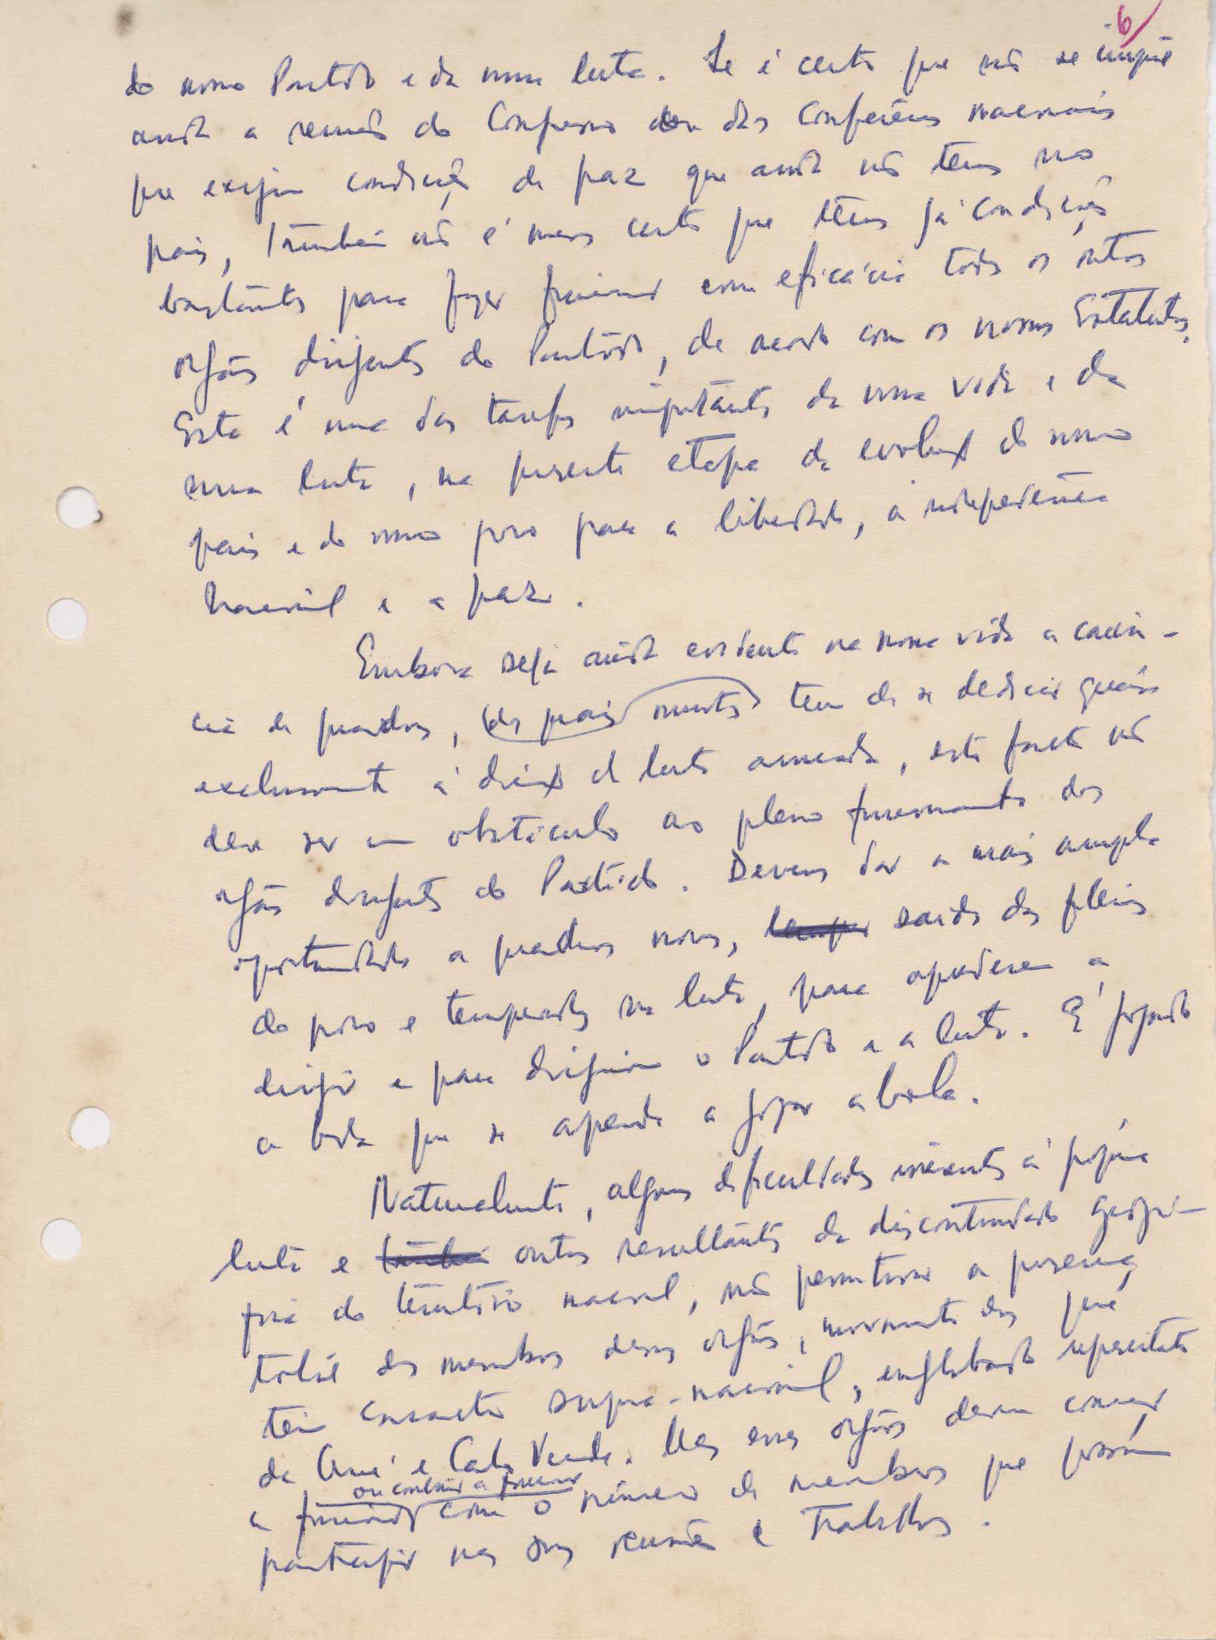 6
do nosso Partido e da nossa luta. Se é certo que não se impõe
ainda a reunião do Congresso ou das Conferências nacionais
que exigem condições de paz que ainda não temos no
país, também não é menos certo que temos já condições
bastantes para fazer funcionar com eficácia todos os outros
orgãos dirigentes do Partido, de acordo com os nossos Estatutos.
Esta é uma das tarefas importantes da nossa vida e da
nossa luta, na presente etapa da evolução do nosso
país e do nosso povo para a liberdade, a independência
nacional e a paz.
Embora seja ainda evidente na nossa vida a carên-
cia de quadros, dos quais muitos tem de se dedicar quase
exclusivamente à direcção da luta armada, este facto não
deve ser um obstáculo ao pleno funcionamento dos
orgãos dirigentes do Partido. Devemos dar a mais ampla
oportunidade a quadros novos, saídos das fileiras
do povo e temperados na luta, para aprenderem a
dirigir e para dirigirem o Partido e a luta. É jogando
a bola que se aprende a jogar a bola.
Naturalmente, algumas dificuldades inerentes à própria
luta e outras resultantes da descontinuidade geográ-
fica do território nacional, não permitirão a presença
total dos membros desses orgãos, nomeadamente dos que
têm caracter supra-nacional, englobando representantes
da Guiné e Cabo Verde. Mas esses orgãos devem começar
ou continuar a funcionar
a funcionar com o número de membros que possam
participar nas suas reuniões e trabalhos.